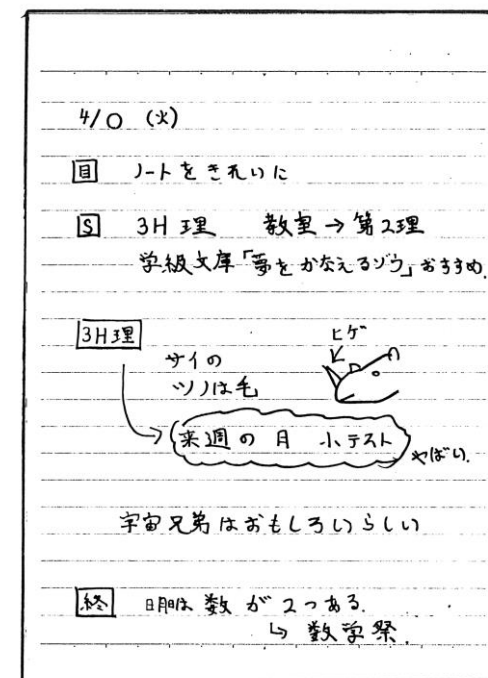 4/○ (火)
目 ノートをきれいに
S 3H 理 教室→第2理
学級文庫「夢をかなえるゾウ」おすすめ.
3H理
ヒゲ
サイの
ツノは毛
来週の月 小テスト
やばい.
宇宙兄弟はおもしろいらしい
終 明日は数が2つある.
↳ 数学祭.